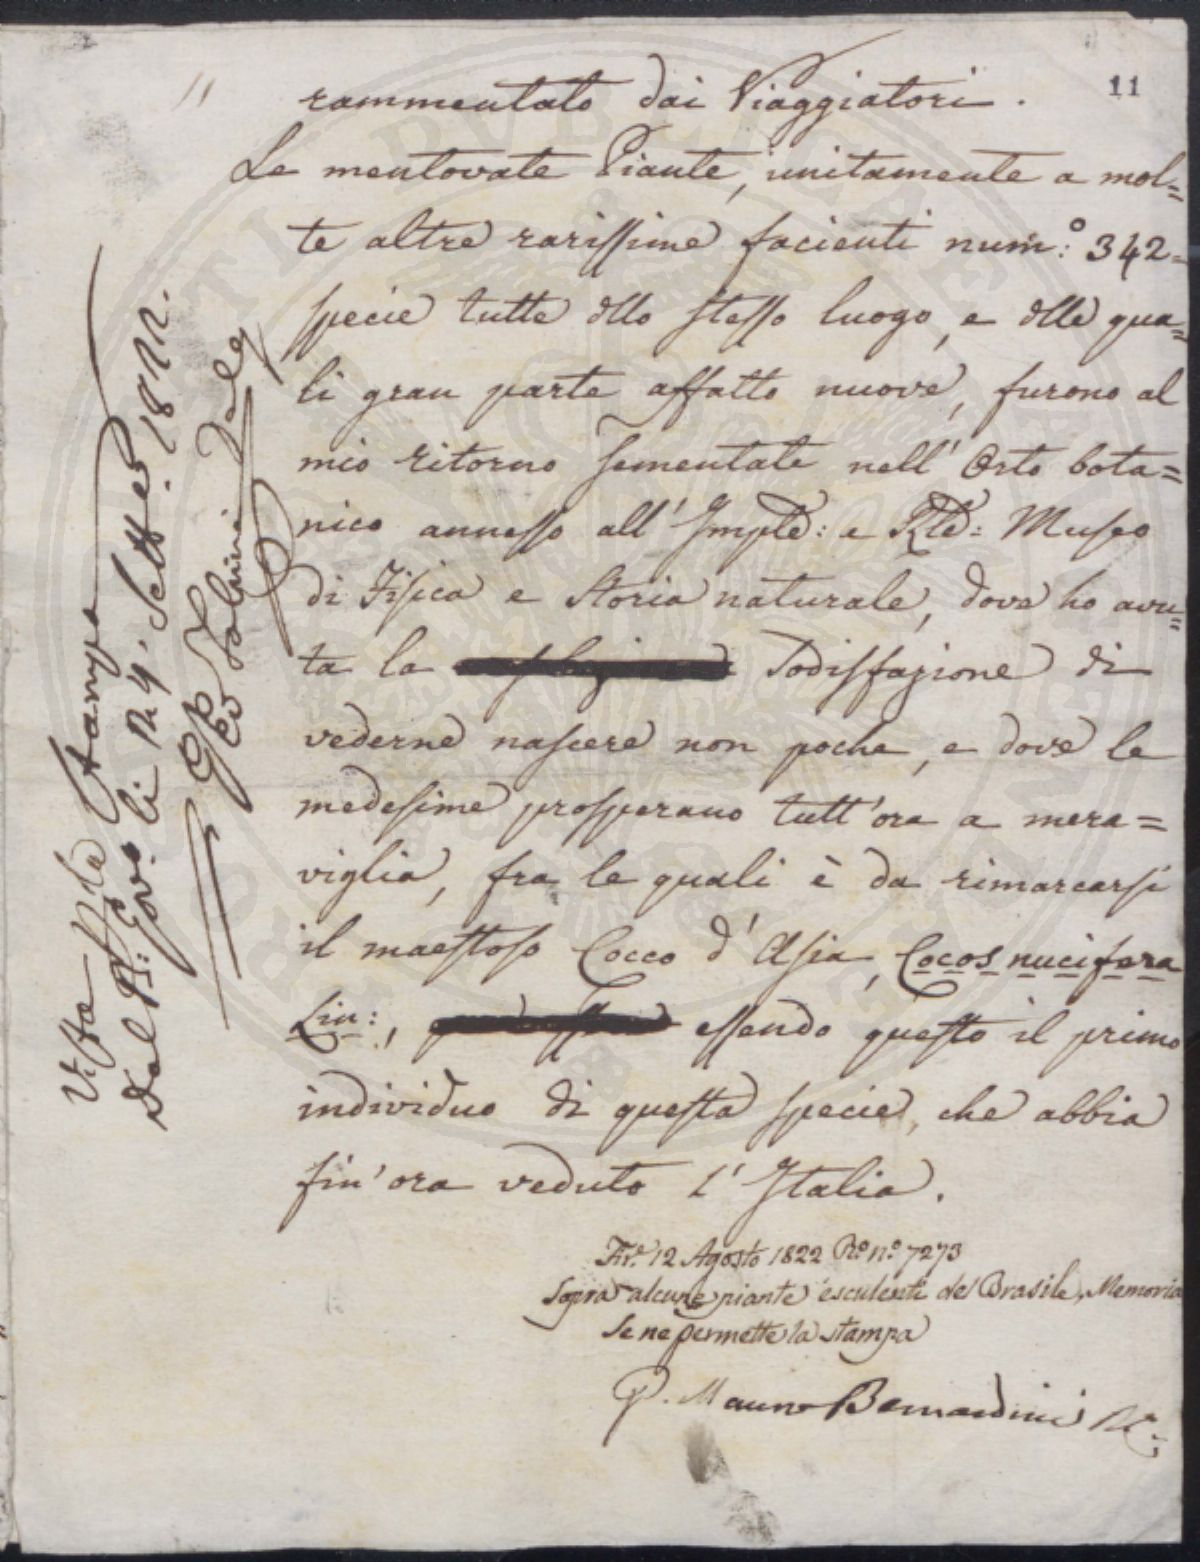 11
11
rammentato dai Viaggiatori.
Le mentovate Piante, unitamente a mol=
te altre rarissime facienti num.º 342=
specie tutte dllo stesso luogo, e dlle qua=
li gran parte affatto nuove, furono al
mio ritorno sementate nell' Orto bota=
nico annesso all' Imple: e Rle: Museo
di Fisica e Storia naturale, dove ho avu=
ta la sodisfazione di
vederne nascere non poche, e dove le
medesime prosperano tutt'ora a mera=
viglia, fra le quali è da rimarcarsi
il maestoso Cocco d'Asia, Cocos nucifera
Lin:, essendo questo il primo
individuo di questa specie, che abbia
fin'ora veduto l'Italia.
Fir.e 12 Agosto 1822 Ro. nº. 7273
Sopra alcune piante esculenti del Brasile, Memoria
Se ne permette la stampa
P. Mauro Bernardini
Vista p. la Stampa
Dal Gov. li 24. Settbre 1822.